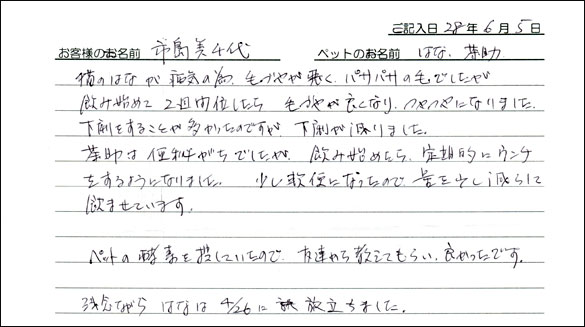 ご記入日 28年 6月 5日
お客様のお名前 市島美千代 ペットのお名前 はな、茶助
猫のはなが病気の為、毛づやが悪く、パサパサの毛でしたが
飲み始めて2週間位したら毛づやが良くなり、つやつやになりました。
下痢をすることが多かったのですが、下痢が減りました。
茶助は便秘がちでしたが、飲み始めたら、定期的にウンチ
をするようになりました。 少し軟便になったので、量を少し減らして
飲ませています。
ペットの酵素を探していたので、友達から教えてもらい、良かったです。
残念ながら はなは 4/26に 旅立ちました。